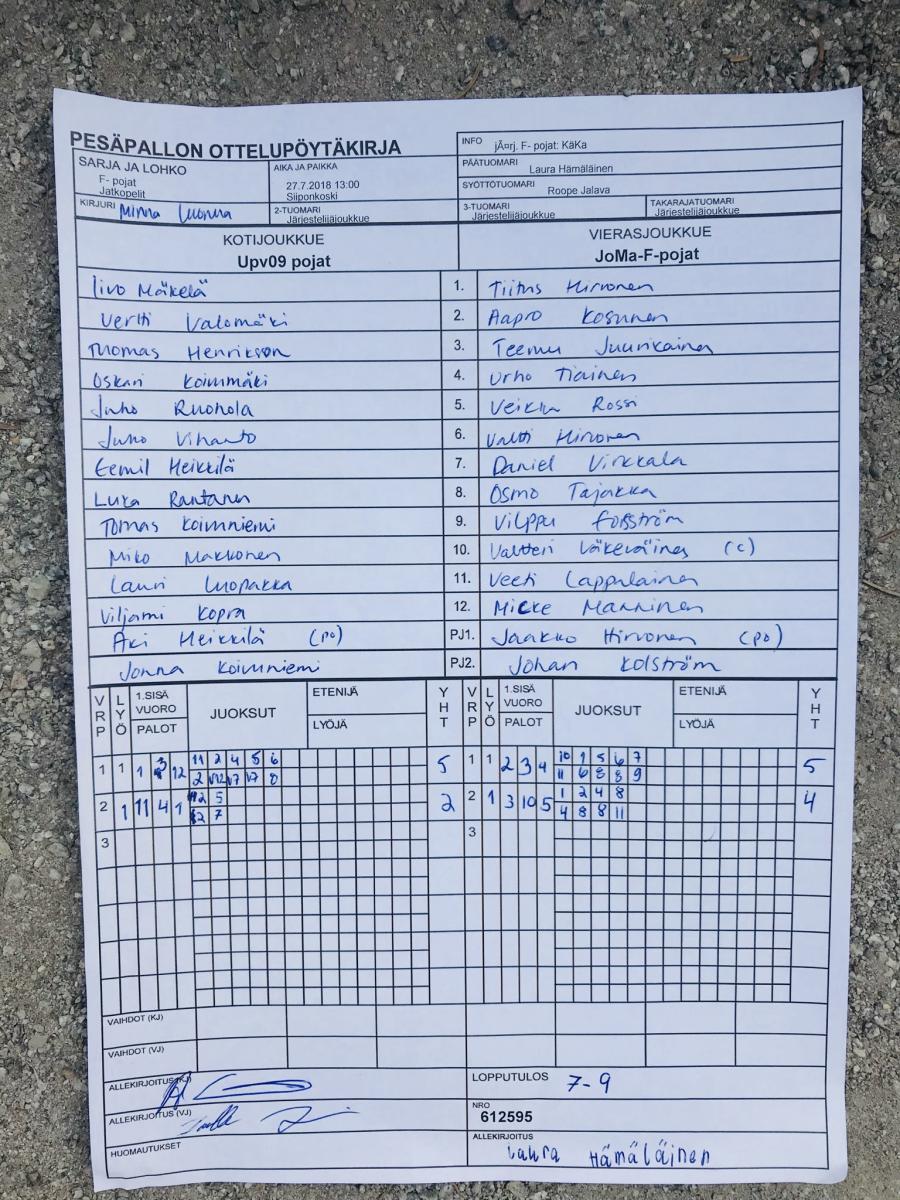 PESÄPALLON OTTELUPÖYTÄKIRJA
INFO jÃ¤rj. F- pojat: KäKa
SARJA JA LOHKO
F- pojat
Jatkopelit
AIKA JA PAIKKA
27.7.2018 13:00
Siiponkoski
PÄÄTUOMARI Laura Hämäläinen
SYÖTTÖTUOMARI Roope Jalava
KIRJURI Minna Luonua
2-TUOMARI Järjestelijäjoukkue
3-TUOMARI Järjestelijäjoukkue
TAKARAJATUOMARI Järjestelijäjoukkue
KOTIJOUKKUE
Upv09 pojat
VIERASJOUKKUE
JoMa-F-pojat
Iivo Mäkelä 1. Tiitus Hirvonen
Vertti Valomäki 2. Aapro Kosunen
Thomas Henrikson 3. Teemu Juurikainen
Oskari Koivumäki 4. Urho Tiainen
Juho Ruohola 5. Veikka Rossi
Juho Vihanto 6. Valtti Hirvonen
Eemil Heikkilä 7. Daniel Virkkala
Luka Rantanen 8. Osmo Tajakka
Tomas Koivuniemi 9. Vilppu Forsström
Miko Makkonen 10. Valtteri Väkeväinen (c)
Lauri Luopakka 11. Veeti Lappalainen
Viljami Kopra 12. Micke Manninen
Aki Heikkilä (po) PJ1. Jaakko Hirvonen (po)
Jonna Koivuniemi PJ2. Johan Kolström
VRP LYÖ 1.SISÄ VUORO PALOT JUOKSUT ETENIJÄ LYÖJÄ YHT VRP LYÖ 1.SISÄ VUORO PALOT JUOKSUT ETENIJÄ LYÖJÄ YHT
1 1 1 3 12 11 2 4 5 6 5 1 1 2 3 4 10 1 5 6 7 5
2 8 11 6 8 8 9
2 1 11 4 1 5 2 2 1 3 10 5 1 2 4 8 4
7 4 8 8 11
3 3
VAIHDOT (KJ)
VAIHDOT (VJ)
ALLEKIRJOITUS (KJ)
LOPPUTULOS 7-9
ALLEKIRJOITUS (VJ)
NRO
612595
HUOMAUTUKSET
ALLEKIRJOITUS
Laura Hämäläinen